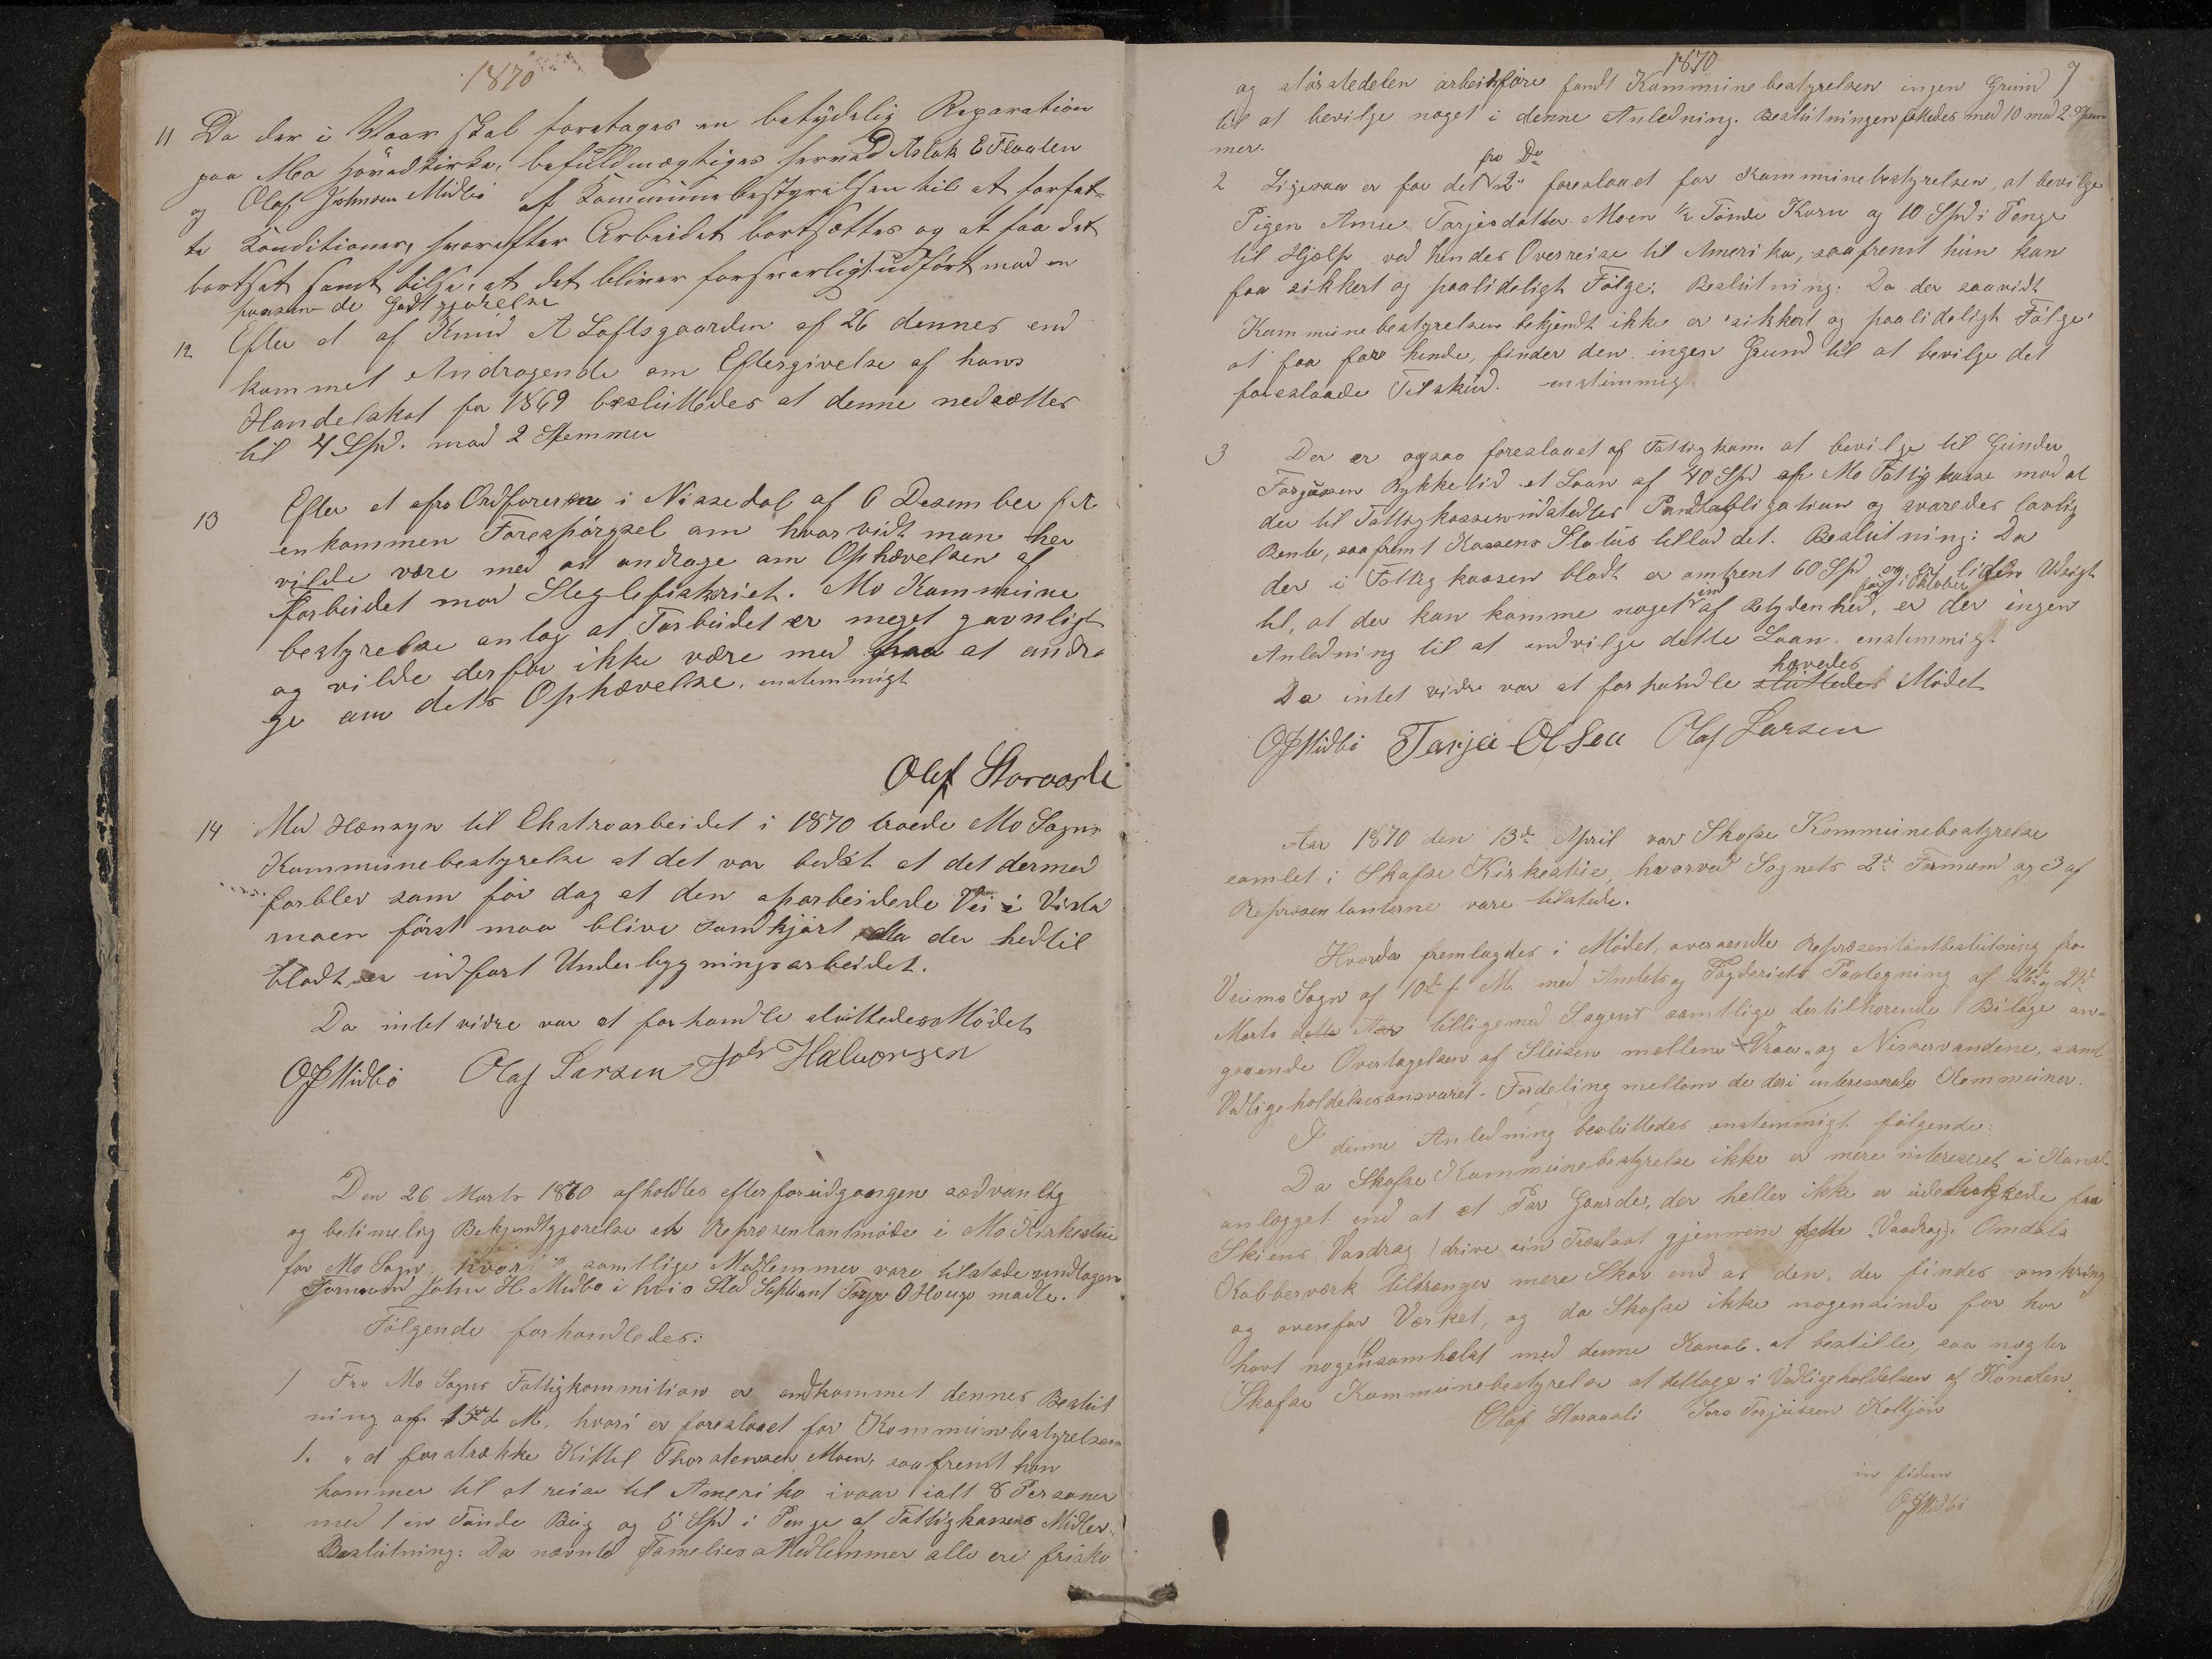 1870
11 Da der i Vaar skal foretages en betydelig Reparation
paa Mo Hovedkirke, befuldmægtiges herved Aslak E Flaaten
og Olaf Johnsen Midbö af Kommunebestyrelsen til at forfat-
te Konditioner, hvorefter Arbeidet bortsættes og at faa det
bortsat samt tilse, at det bliver forsvarligt udfört mod en
passende Godtgjörelse
12. Efter et af Knud A Loftsgaarden af 26 dennes ind
kommet Andragende om Eftergivelse af hans
Handelskat for 1869 besluttedes at denne nedsættes
til 4 Spd. mod 2 Stemmer
13 Efter et fra Ordföreren i Nissedal af 6 Desember f A
enkommen Forespörgsel om hvorvidt man her
vilde være med at andrage om Ophævelsen af
Forbudet mod Steglefiskeriet. Mo Kommune
bestyrelse antog at Forbudet er meget gavnligt
og vilde derfor ikke være med paa at andra
ge om dets Ophævelse. enstemmigt
Olaf Storaasli
14 Med Hensyn til Ekstraarbeidet i 1870 troede Mo Sogns
Kommunebestyrelse at det var bedst at det dermed
forblev som för dog at den oparbeidede Vei i Vista
moen först maa blive samkjört, da der hedtil
blodt er udfort Underbygningsarbeidet.
Da intet vidre var at forhandle sluttedes Mödet
OJMidbö Olaf Larsen Joh Halvorsen
Den 26 Marts 1870 afholdtes efter forudgaangen sædvanlig
og betimelig Bekjendtgjörelse et Repræsentantmöde i Mo Kirkestue
for Mo Sogn, hvori samtlige Medlemmer vare tilstæde undtagen
Formand John H Midbö i hvis Sted Supliant Torje O Houge mödte.
Fölgende forhandledes:
1 Fra Mo Sogns Fattigkommition er indkommet dennes Beslut
ning af 15de d M, hvori er foreslaaet for Kommunebestyrelsen
1. " at forstrække Kittil Thorstensen Moen, saafremt han
kommer til at reise til Ameriko ivaar ialt 8 Personer
med 1 en Tönde Byg og 5 Spd i Penge af Fattigkassens Midler."
Beslutning: Da nævnte Familiesa Medlemmer alle ere friske
1870
9
og störstedelen arbeidsföre fandt Kommunebestyrelsen ingen Grund
til at bevilge noget i denne Anledning. Beslutningen fattedes med 10 mod 2 Stem
mer.
2 Ligesaa er for det 2" fra Do foreslaaet for Kommunebestyrelsen, at bevilge
Pigen Anne Tarjesdatter Moen 1/2 Tönde Korn og 10 Spd i Penge
til Hjælp ved hendes Overreise til Amerika, saafremt hun kan
faa sikkert og paalideligt Fölge. Beslutning: Da der saavidt
Kommunebestyrelsen bekjendt ikke er "sikkert og paalideligt Fölge"
at faa for hende, finder den ingen Grund til at bevilge det
foreslaaede Tilskud. enstemmigt
3 Der er ogsaa foreslaaet af Fattigkom. at bevilge til Gunder
Torjussen Rykkelid et Laan af 40 Spd af Mo Fattigkasse mod at
der til Fattigkassen udstedtes Pandtobligation og svaredes lovlig
Rente, saafremt Kassens Status tillod det. Beslutning: Da
der i Fattigkassen blodt er omtrent 60 Spd og er liden Udsigt
til, at der kan komme noget ind af Betydenhed, för i Oktober er der ingen
Anledning til at indvilge dette Laan. enstemmigt.
Da intet vidre var at forhandle sluttedes hævedes Mödet
OJMidbö Tarjei Olsen Olaf Larsen
Aar 1870 den 13de April var Skafse Kommunebestyrelse
samlet i Skafse Kirkestue, hvorved Sognets 2de Formænd og 3 af
Repræsentanterne vare tilstede.
Hvorda fremlagdes i Mödet, oversendte Repræsentantbeslutning fra
Veums Sogn af 10de f. M. med Amtets og Fogderiets Paategning af 26de og 29de
Marts dette Aar tilligemed Sagens samtlige dertilhorende Bilage an-
gaaende Overtagelsen af Slusen mellem Vraa- og Nisservandene, samt
Vedligeholdelsesansvaret. Fordeling mellem de deri interesserede Kommuner.
I denne Anledning besluttedes enstemmigt fölgende:
Da Skafse Kommunebestyrelse ikke er mere intereseret i Kanal-
anlægget end at et Par Gaarde, der heller ikke er udelukkede fra
Skiens Vasdrag (drive sin Træslaat gjennem dette Vasdrag). Omdals
Kobberværk tiltrænger mere Skov end at den, der findes omkring
og ovenfor Værket, og da Skafse ikke nogensinde för har
havt nogetsomhelst med denne Kanal at bestille, saa nægter
Skafse Kommunebestyrelse at deltage i Vedligeholdelsen af Kanalen
Olaf Storaasli Sven Torjussen Kottjön
in fidem
OJMidbö